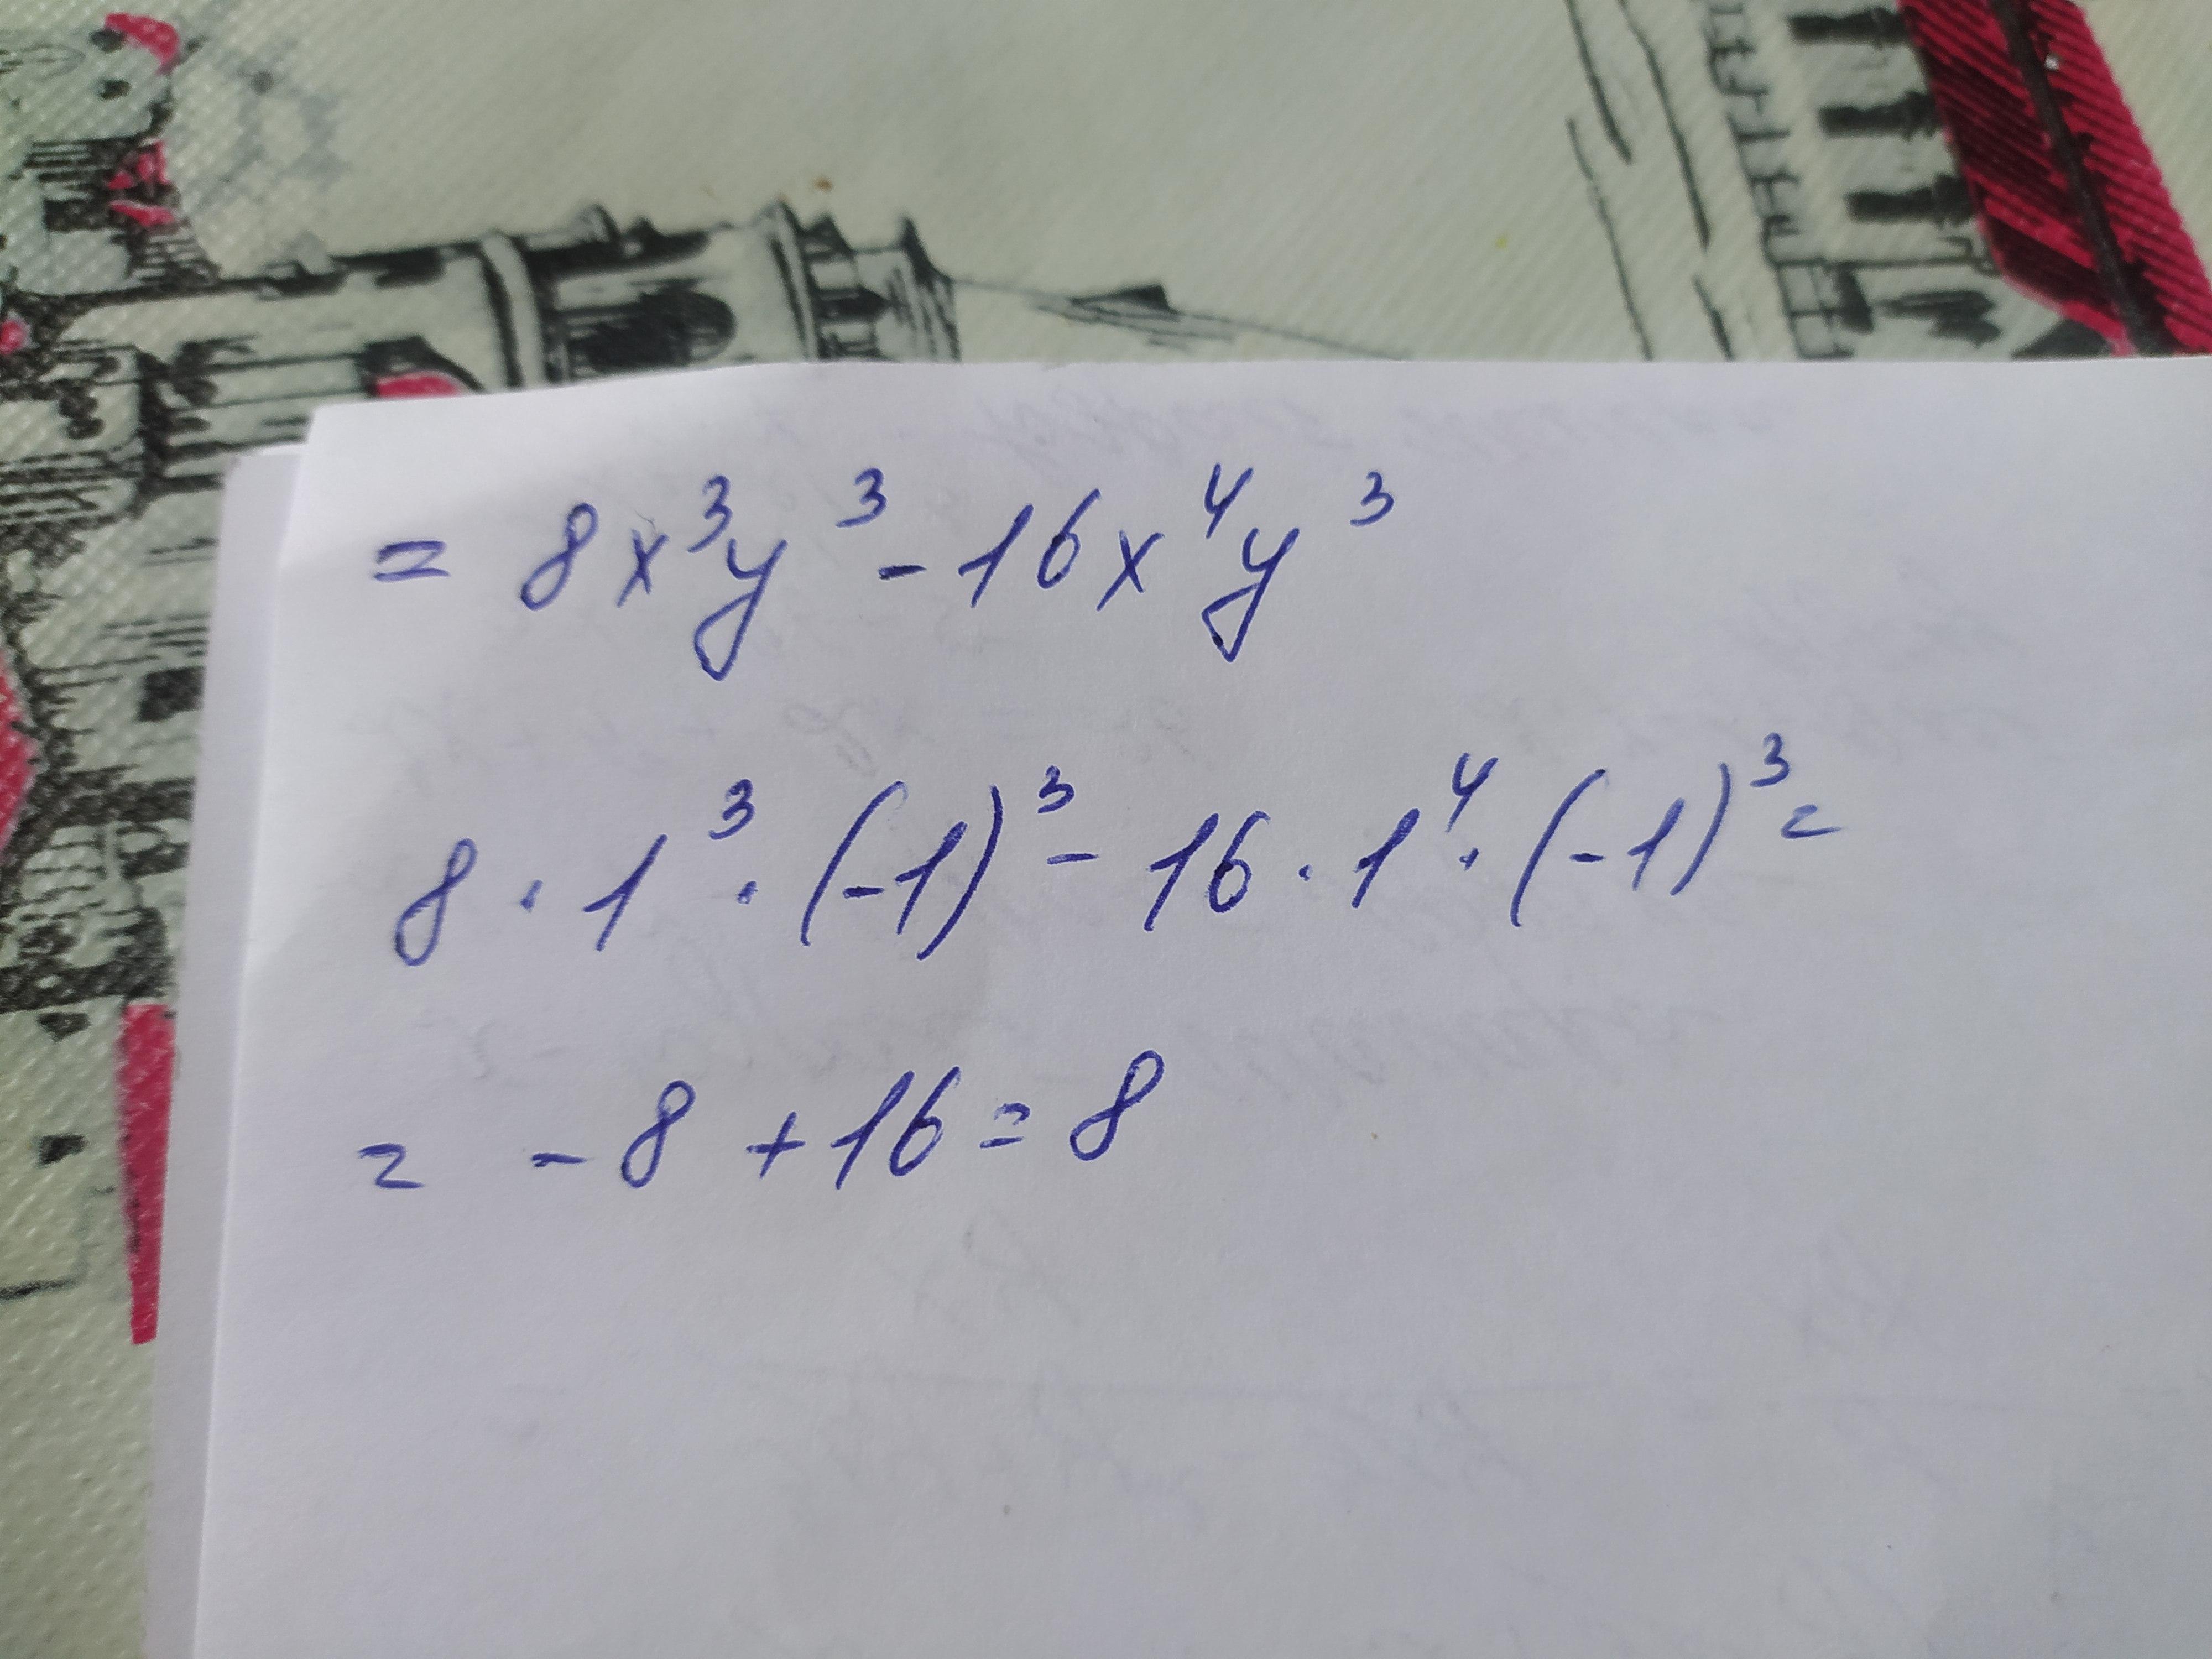 = 8x³y³ - 16x⁴y³
8 · 1³ · (-1)³ - 16 · 1⁴ · (-1)³ =
= - 8 + 16 = 8